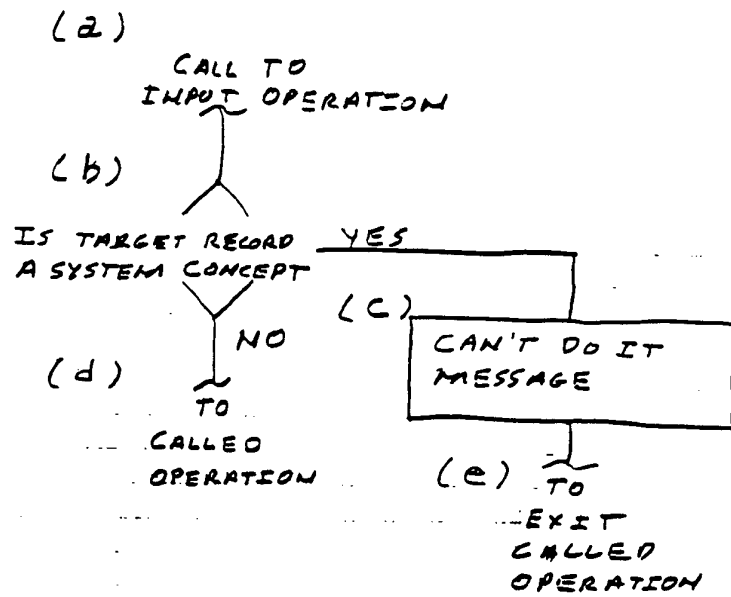 (a)
CALL TO
INPUT OPERATION
(b)
IS TARGET RECORD
A SYSTEM CONCEPT
YES
(c)
CAN'T DO IT
MESSAGE
NO
(d)
TO
CALLED
OPERATION
(e)
TO
EXIT
CALLED
OPERATION